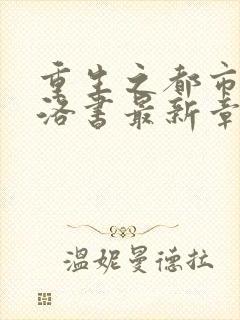 重生之都市
洛书最新章
温妮曼德拉